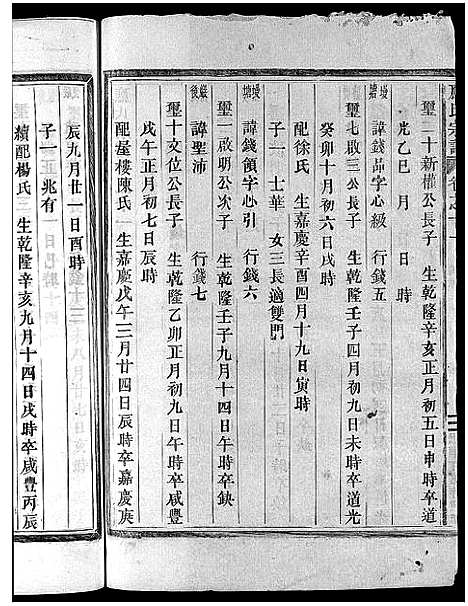 氏宗譜 卷之十一
璽二十新權公長子 生乾隆辛亥正月初五日申時卒道
光乙巳 月 日 時
塘 諱錢品字心級 行錢五
璽七啟三公長子 生乾隆壬子四月初九日未時卒道光
癸卯十月初六日戌時
配徐氏 生嘉慶辛酉四月十九日寅時
子一 士華 女三長適雙門
塘 諱錢領字心引 行錢六
璽一啟明公次子 生乾隆壬子九月十四日午時卒缺
後 諱聖沛 行錢七
璽十文位公長子 生乾隆乙卯正月初九日午時卒咸豐
戊午正月初七日辰時
配屋樓陳氏 生嘉慶戊午三月廿四日辰時卒嘉慶庚
辰九月廿一日酉時
子一 正兆有
續配楊氏 生乾隆辛亥九月十四日戌時卒咸豐丙辰